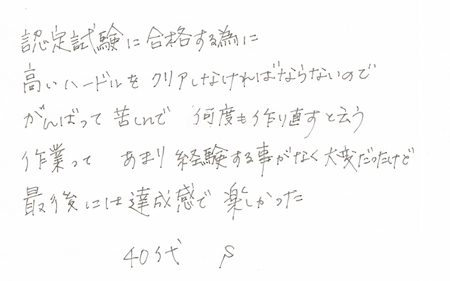 認定試験に合格する為に
高いハードルをクリアしなければならないので
がんばって苦しんで 何度も作り直すと云う
作業って あまり経験する事がなく大変だったけど
最後には達成感で楽しかった
40代 S